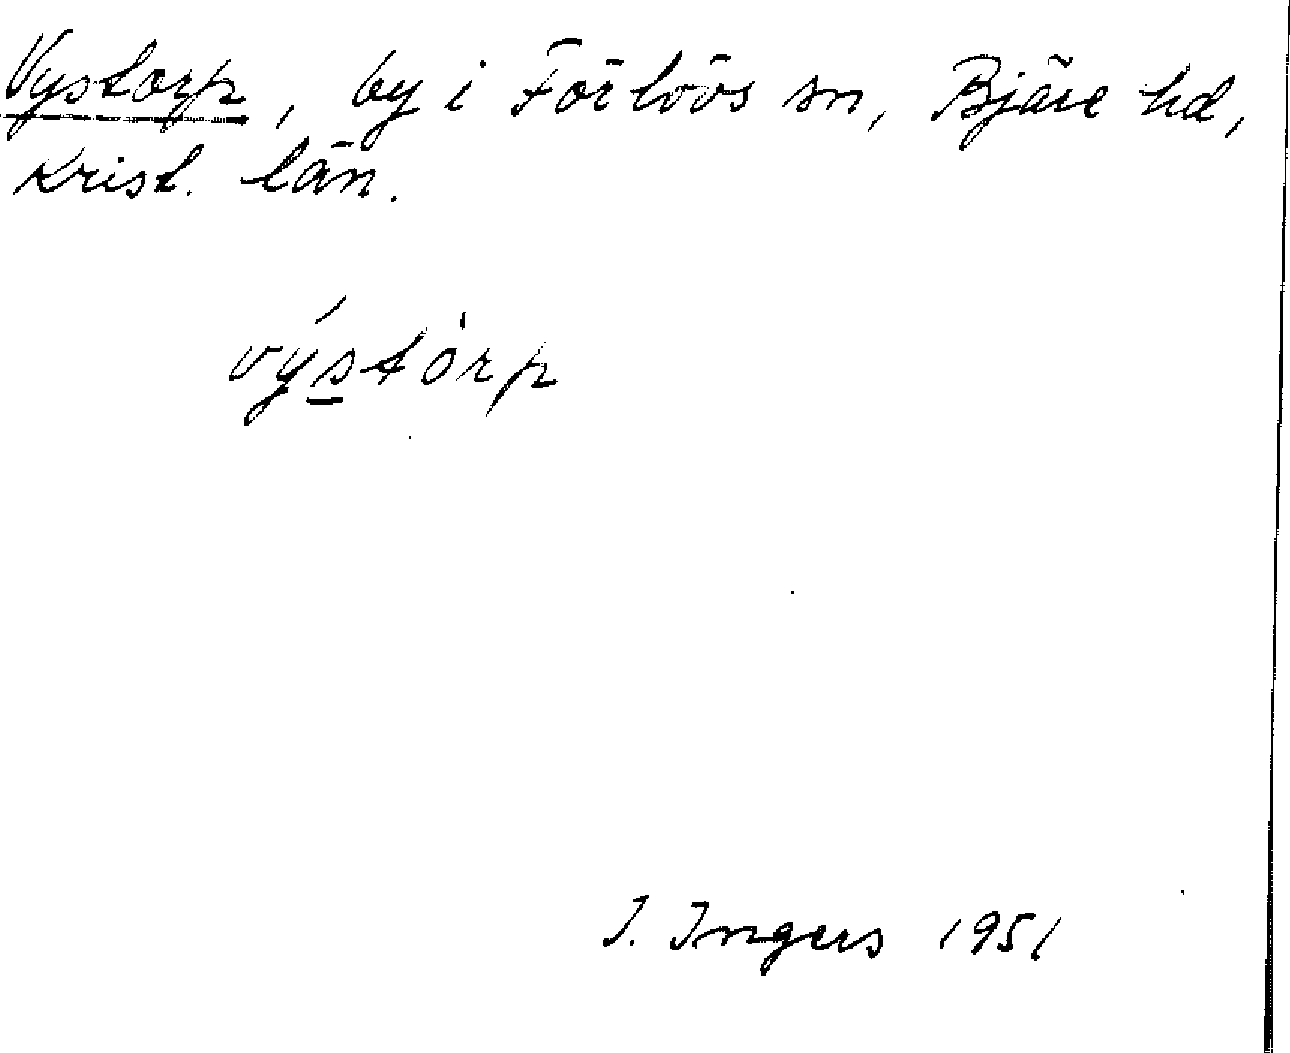 Vystorp, by i Förlövs sn, Bjäre hd,
Krist. län.
výstòrp
I. Ingers 1951